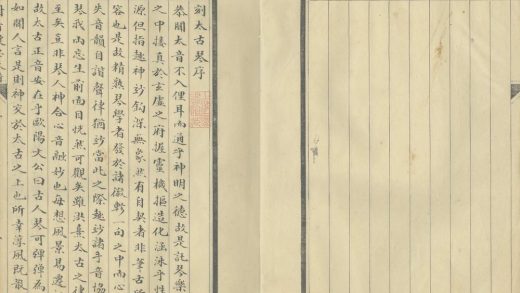 刻太古琴序
恭聞太音不入俚耳而通乎神明之德故是託琴樂
之中接真於玄虛之府握靈機摳造化涵泳乎性
源但指趣神妙鈎深無象然有自契者非筆舌所
容也是故精熟琴學者發於諸徽軫一向之中而心
失音韻自諧聲律猶妙當此之際趣妙諸乎音協
琴我兩忘生前而目恍然可觀矣雖洪熹太古之律
至矣豈非琴人神合心音融妙也每想風景易遷
故太古正音安在乎歐陽文公曰古人琴可繹彈為
如聞人言是則神交於太古之上也所幸薄風既散